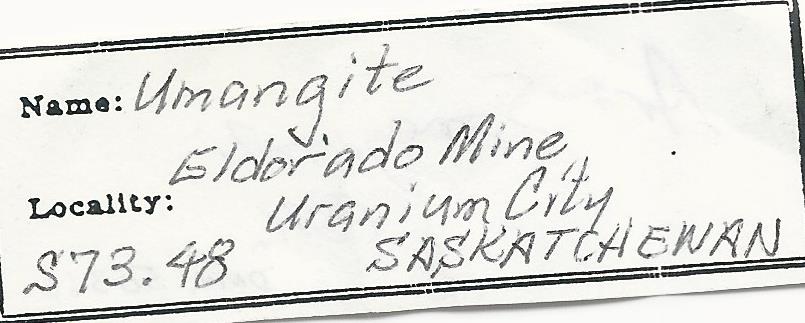 Name: Umangite
Eldorado Mine
Locality: Uranium City
S73.48 SASKATCHEWAN